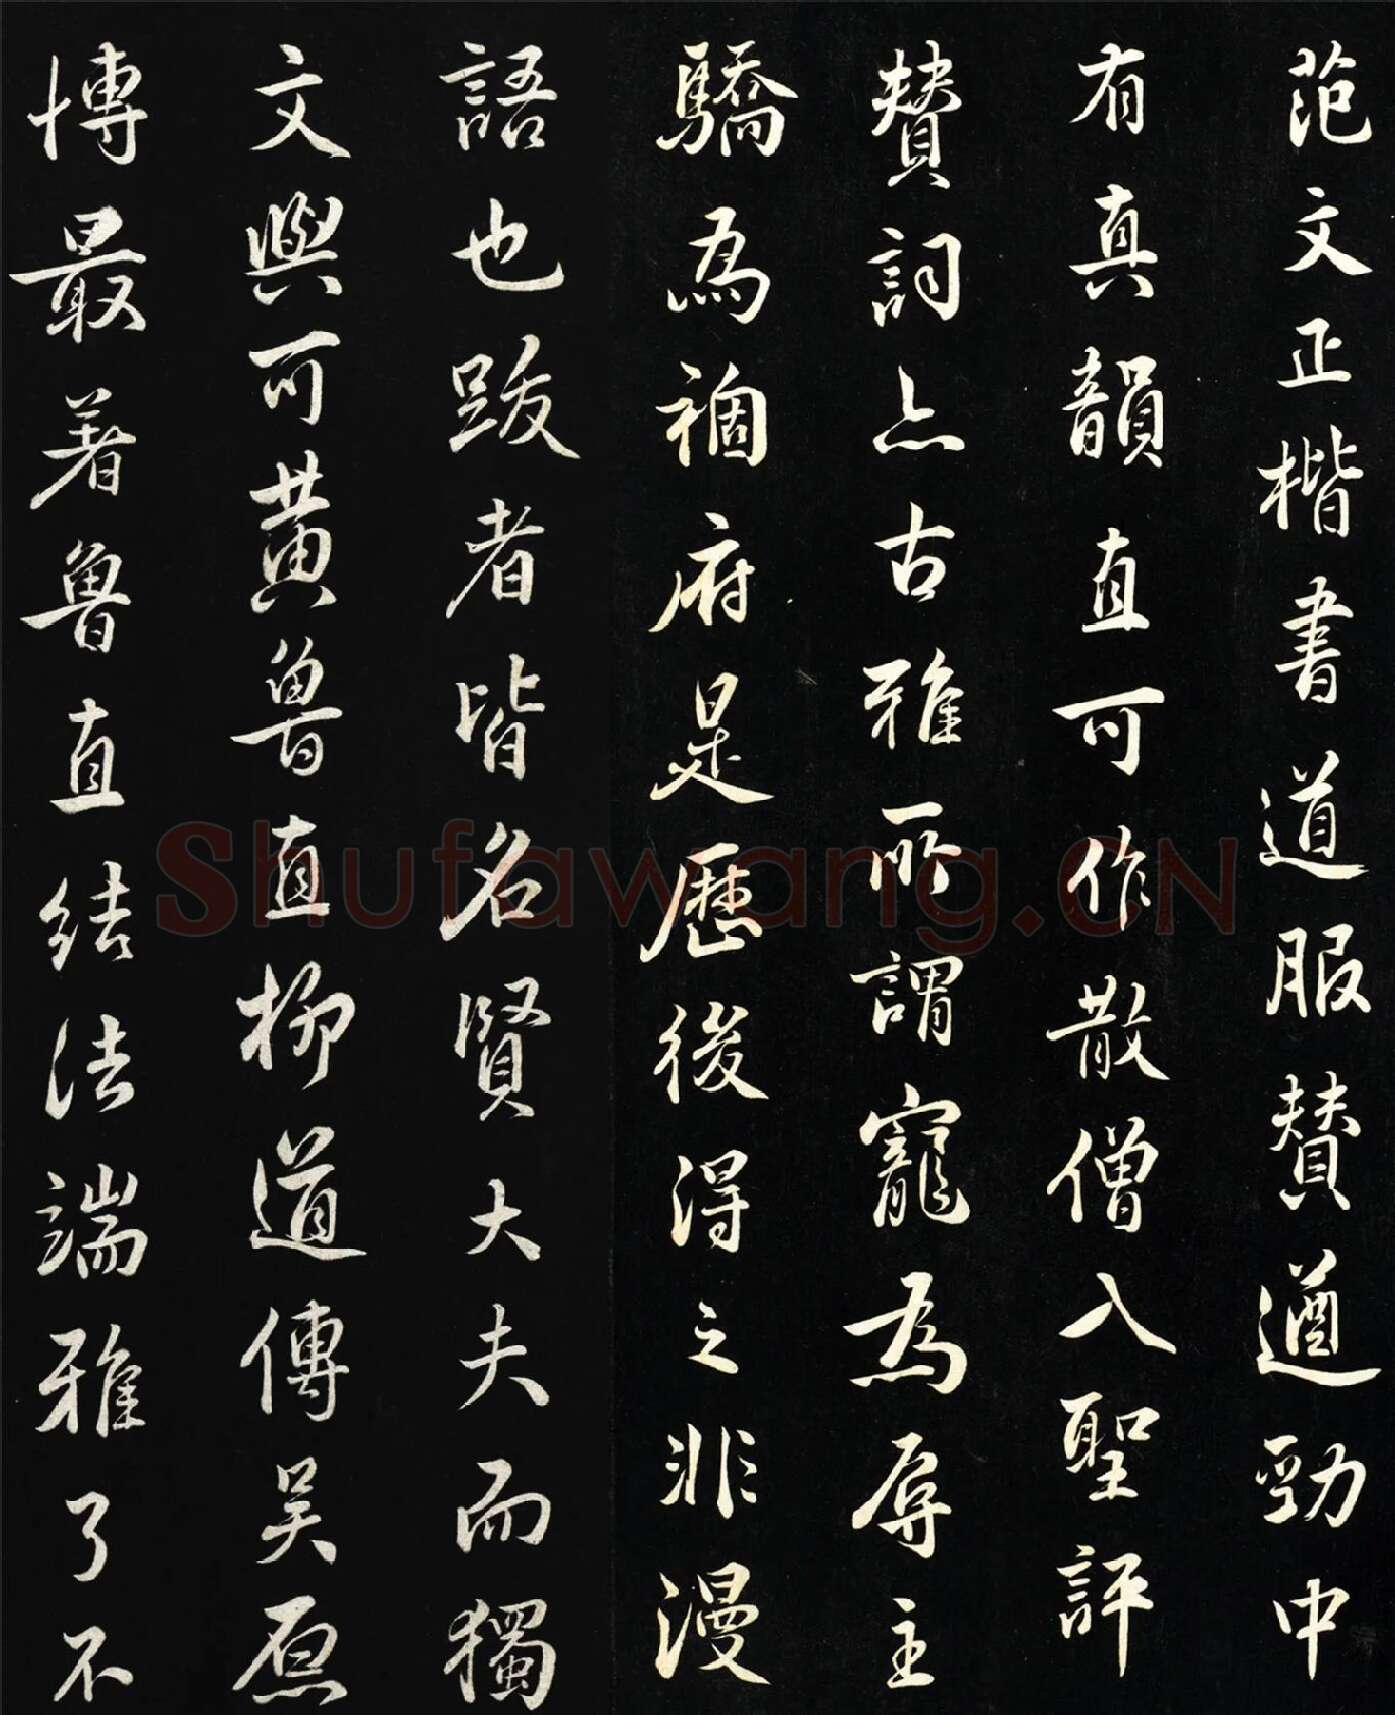 范文正楷書道服贊遒勁中
有真韻直可作散僧入聖評
贊詞亦古雅所謂寵為辱主
驕為禍府是歷後得之非漫
語也跋者皆名賢大夫而獨
文與可黃魯直柳道傳吳原
博最著魯直結法端雅了不
Shufawang.CN